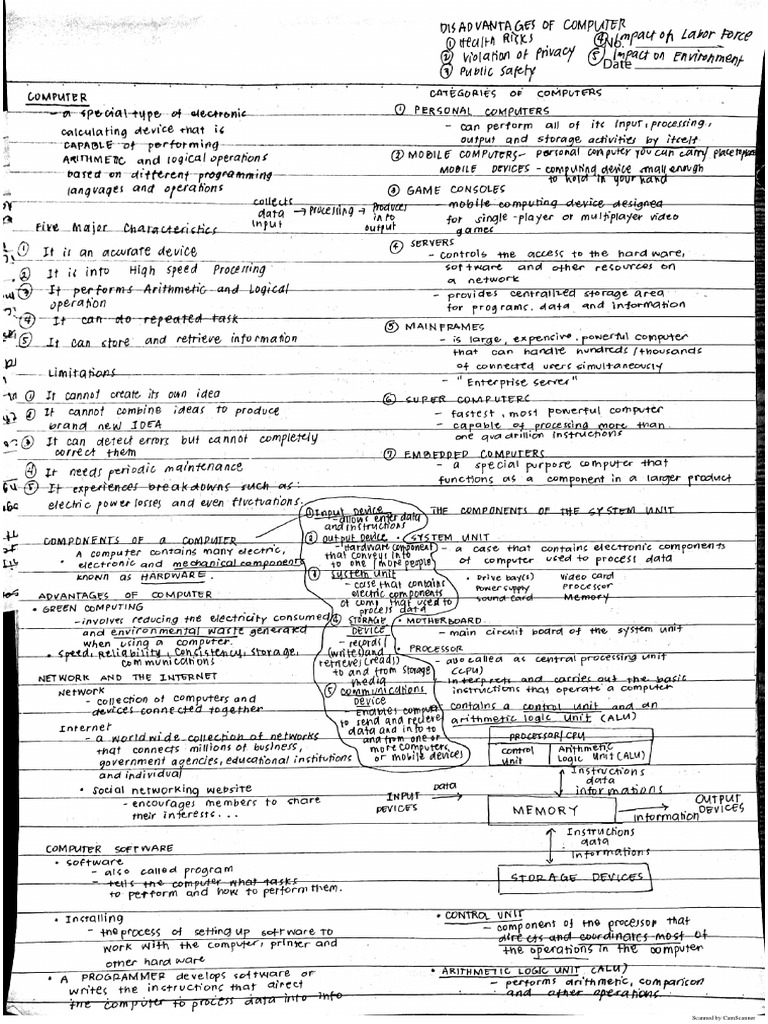 DISADVANTAGES OF COMPUTER
① Health Risks
② Violation of Privacy
③ Public Safety
④ Impact on Labor Force
⑤ Impact on Environment
No.
Date
COMPUTER
- a special type of electronic
calculating device that is
CAPABLE of performing
ARITHMETIC and logical operations
based on different programming
languages and operations
collects data input → Processing → Produces into output
Five Major Characteristics
① It is an accurate device
② It is into High speed Processing
③ It performs Arithmetic and Logical
operation
④ It can do repeated task
⑤ It can store and retrieve information
Limitations
① It cannot create its own idea
② It cannot combine ideas to produce
brand new IDEA
③ It can detect errors but cannot completely
correct them
④ It needs periodic maintenance
⑤ It experiences breakdowns such as:
electric power losses and even fluctuations.
COMPONENTS OF A COMPUTER
A computer contains many electric,
• electronic and mechanical components
known as HARDWARE.
① Input Device
- allows enter data
and instructions
② Output Device
- Hardware component
that conveys info
to one / more people
③ System Unit
- case that contains
electric components
of comp that used to
process data
④ STORAGE
DEVICE
- records
(write) and
retrieves (read)
to and from storage
media
⑤ Communications
DEVICE
- Enables computer
to send and recieve
data and info to
and from one or
more computers
or mobile devices
ADVANTAGES OF COMPUTER
• GREEN COMPUTING
- involves reducing the electricity consumed
and environmental waste generated
when using a computer
• Speed, Reliability, Consistency, Storage,
communications
NETWORK AND THE INTERNET
Network
- collection of computers and
devices connected together
Internet
- a world wide collection of networks
that connects millions of business,
government agencies, educational institutions
and individual
• Social networking website
- encourages members to share
their interests...
COMPUTER SOFTWARE
• Software
- also called program
- tells the computer what tasks
to perform and how to perform them.
• Installing
- the process of setting up software to
work with the computer, printer and
other hardware
• A PROGRAMMER develops software or
writes the instructions that direct
the computer to process data into info
CATEGORIES OF COMPUTERS
① PERSONAL COMPUTERS
- can perform all of its input, processing,
output and storage activities by itself
② MOBILE COMPUTERS - personal computer you can carry place to place
MOBILE DEVICES - computing device small enough
to hold in your hand
③ GAME CONSOLES
- mobile computing device designed
for single-player or multiplayer video
games
④ SERVERS
- controls the access to the hardware,
software and other resources on
a network
- provides centralized storage area
for programs, data and information
⑤ MAINFRAMES
- is large, expensive, powerful computer
that can handle hundreds/thousands
of connected users simultaneously
- "Enterprise server"
⑥ SUPER COMPUTERS
- fastest, most powerful computer
- capable of processing more than
one quadrillion instructions
⑦ EMBEDDED COMPUTERS
- a special purpose computer that
functions as a component in a larger product
THE COMPONENTS OF THE SYSTEM UNIT
• SYSTEM UNIT
- a case that contains electronic components
of computer used to process data
• Drive bay(s) Video card
Power supply Processor
Sound card Memory
• MOTHERBOARD
- main circuit board of the system unit
• PROCESSOR
- also called as central processing unit
(CPU)
- interprets and carries out the basic
instructions that operate a computer
- contains a control unit and an
arithmetic logic unit (ALU)
PROCESSOR/CPU
control unit
Arithmetic Logic Unit (ALU)
Instructions
data
informations
INPUT DEVICES
Data
MEMORY
Information
OUTPUT DEVICES
Instructions
data
informations
STORAGE DEVICES
• CONTROL UNIT
- component of the processor that
directs and coordinates most of
the operations in the computer
• ARITHMETIC LOGIC UNIT (ALU)
- performs arithmetic, comparison
and other operations
Scanned by CamScanner